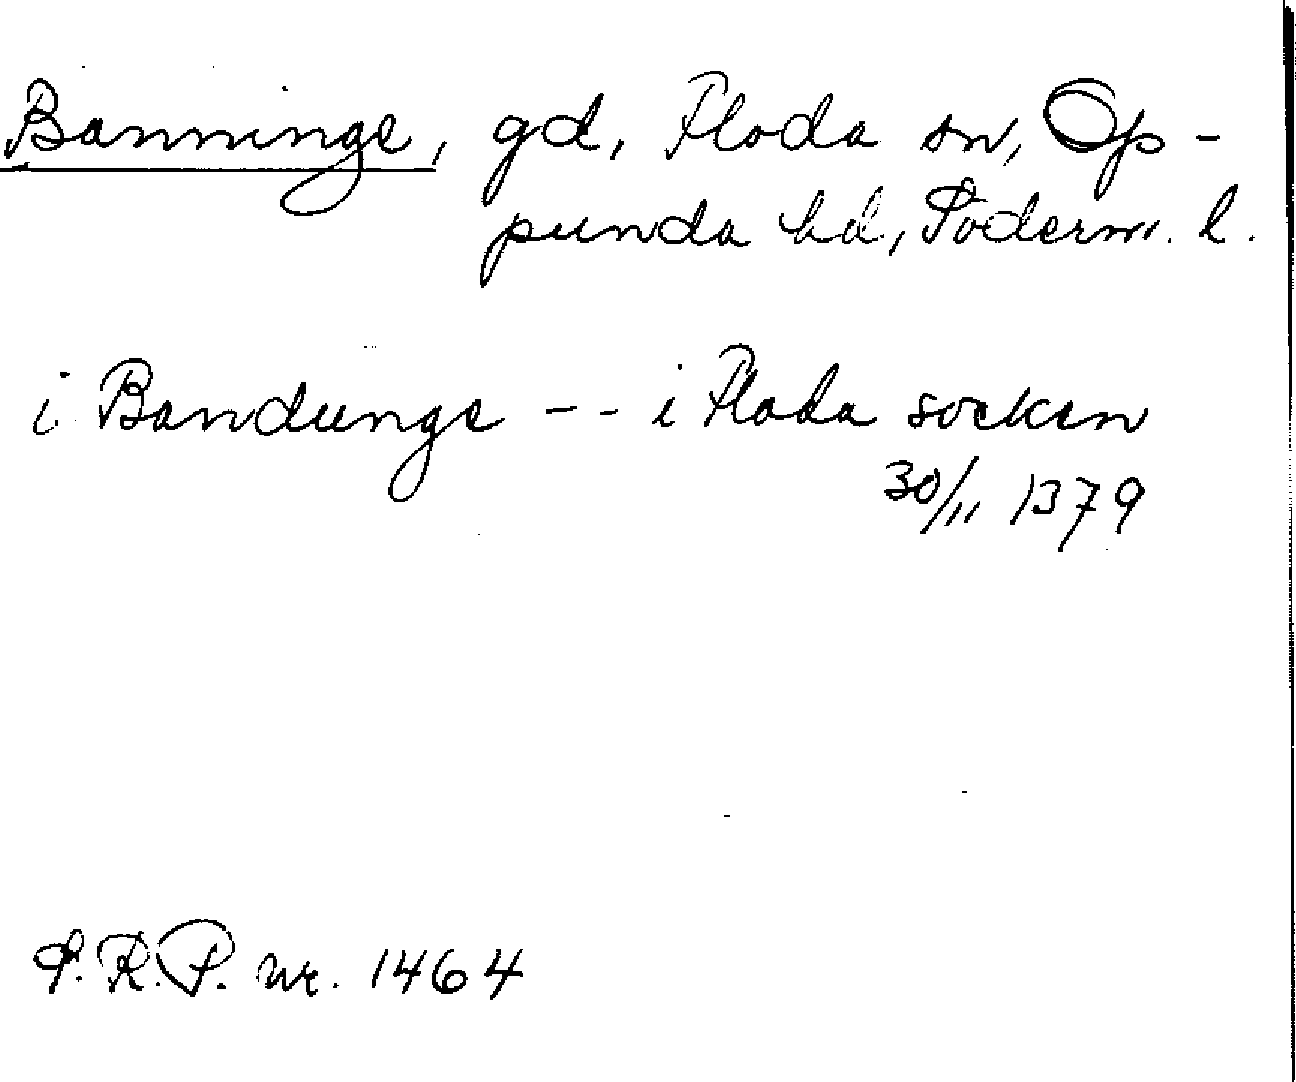 Banninge, gd, Floda sn, Op-
punda hd, Söderm. l.
i Bandunge -- i Floda socken
30/11 1379
S.R.P. nr. 1464